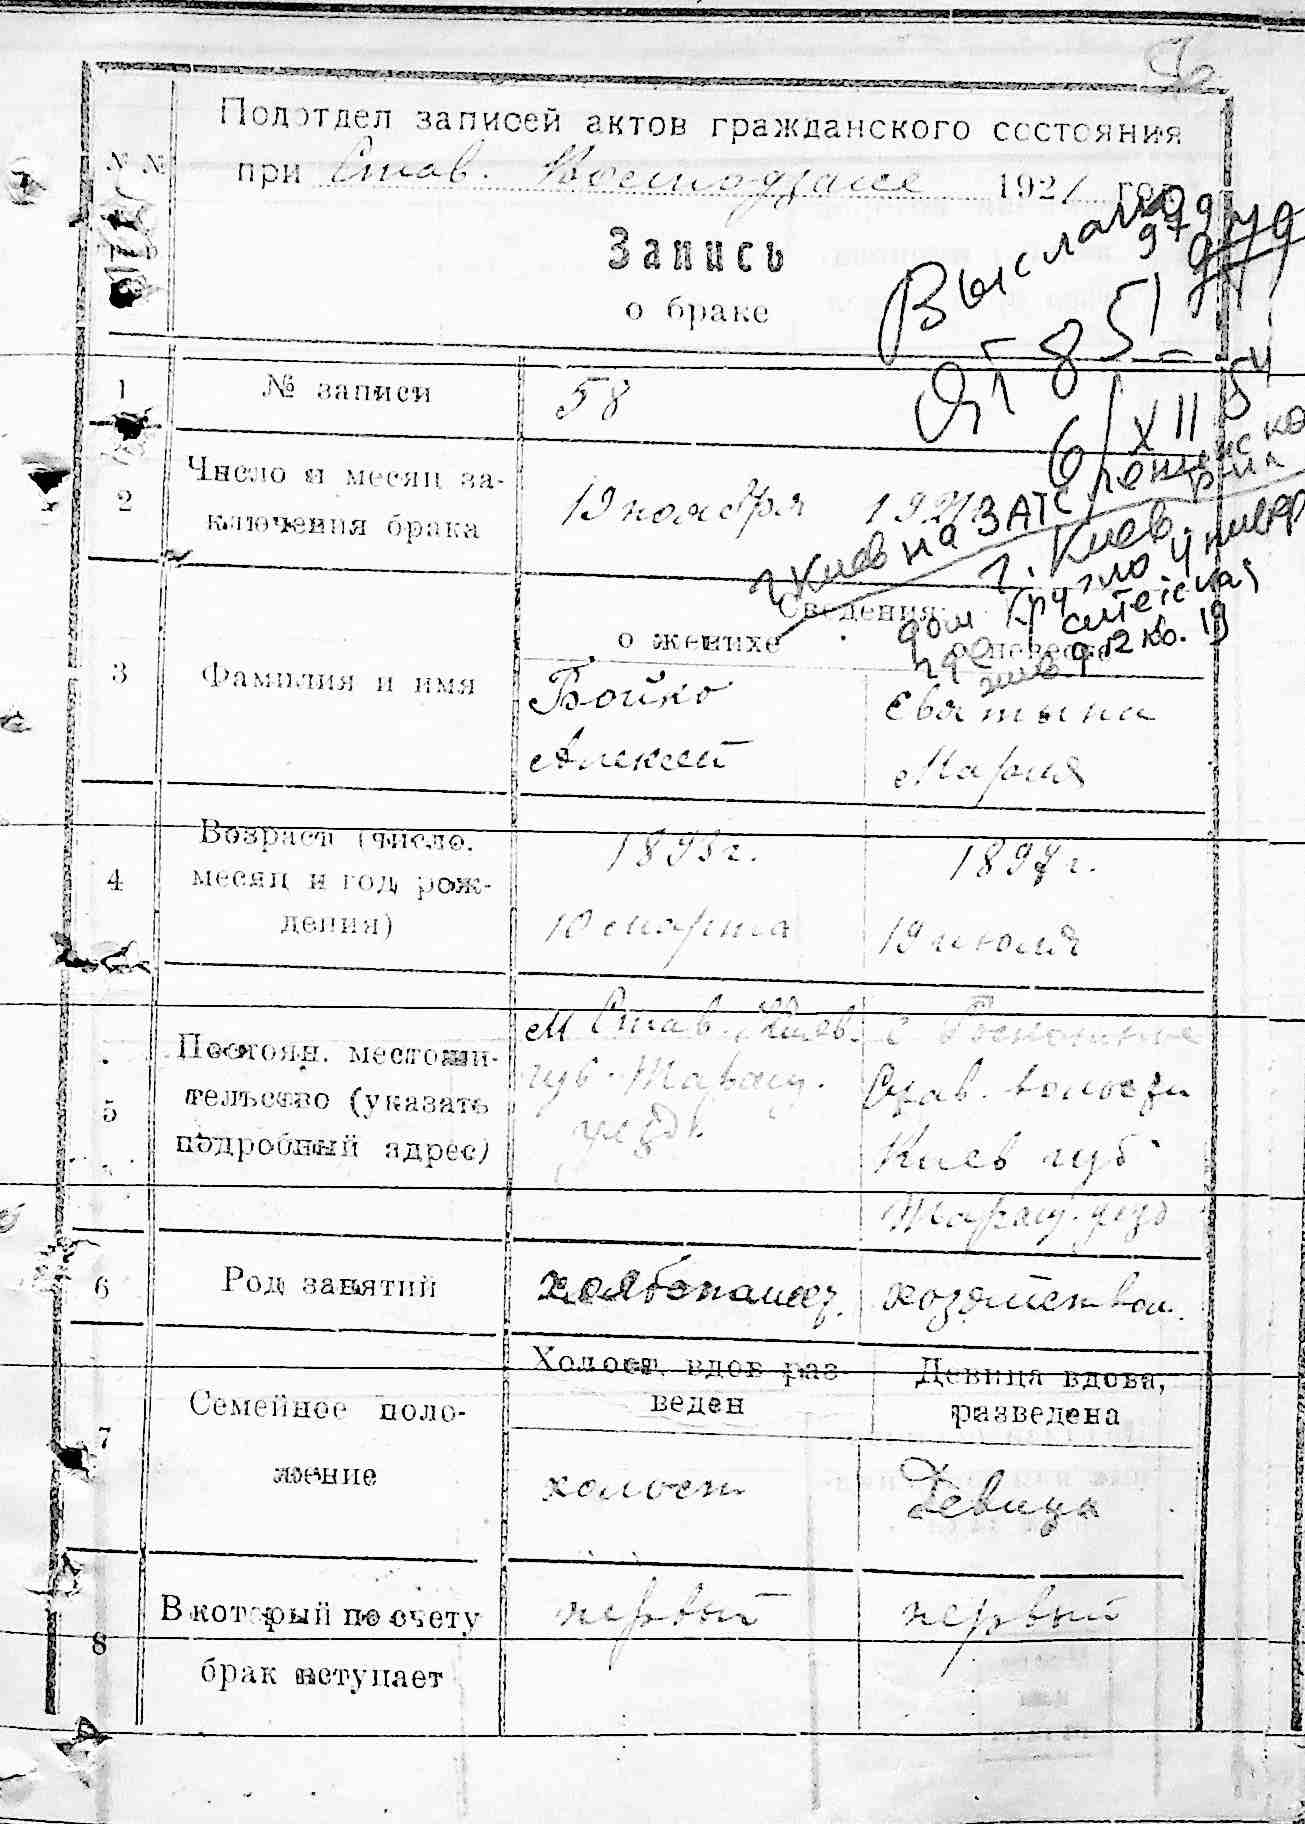 Подотдел записей актов гражданского состояния
№ №
при Став. 1921 год
Запись
о браке
Выслано
6/XII 54
г. Киев на ЗАГС
г. Киев
1
№ записи
58
2
Число и месяц за-
ключения брака
19 ноября 1921
Сведения
о женихе
о невесте
кв. 19
3
Фамилия и имя
Бойко
Алексей
Мария
4
Возраст (число.
месяц и год рож-
дения)
1893 г.
10 марта
1897 г.
19 июля
5
Постоян. местожи-
тельство (указать
подробный адрес)
м Став. Киев.
губ. Таращ.
уезда
с
Став. волости
Киев губ
Таращ. уезд
6
Род занятий
хлебопашец.
хозяйством.
7
Семейное поло-
жение
Холост, вдов раз-
веден
холост
Девица вдова,
разведена
Девица
8
В который по счету
брак вступает
первый
первый